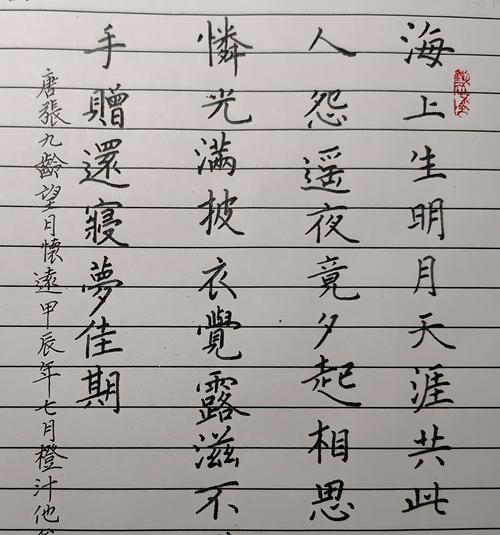 海上生明月天涯共此
人怨遥夜竟夕起相思
憐光滿披衣覺露滋不
手贈還寢夢佳期
唐張九齡望月懷遠甲辰年七月橙汁他